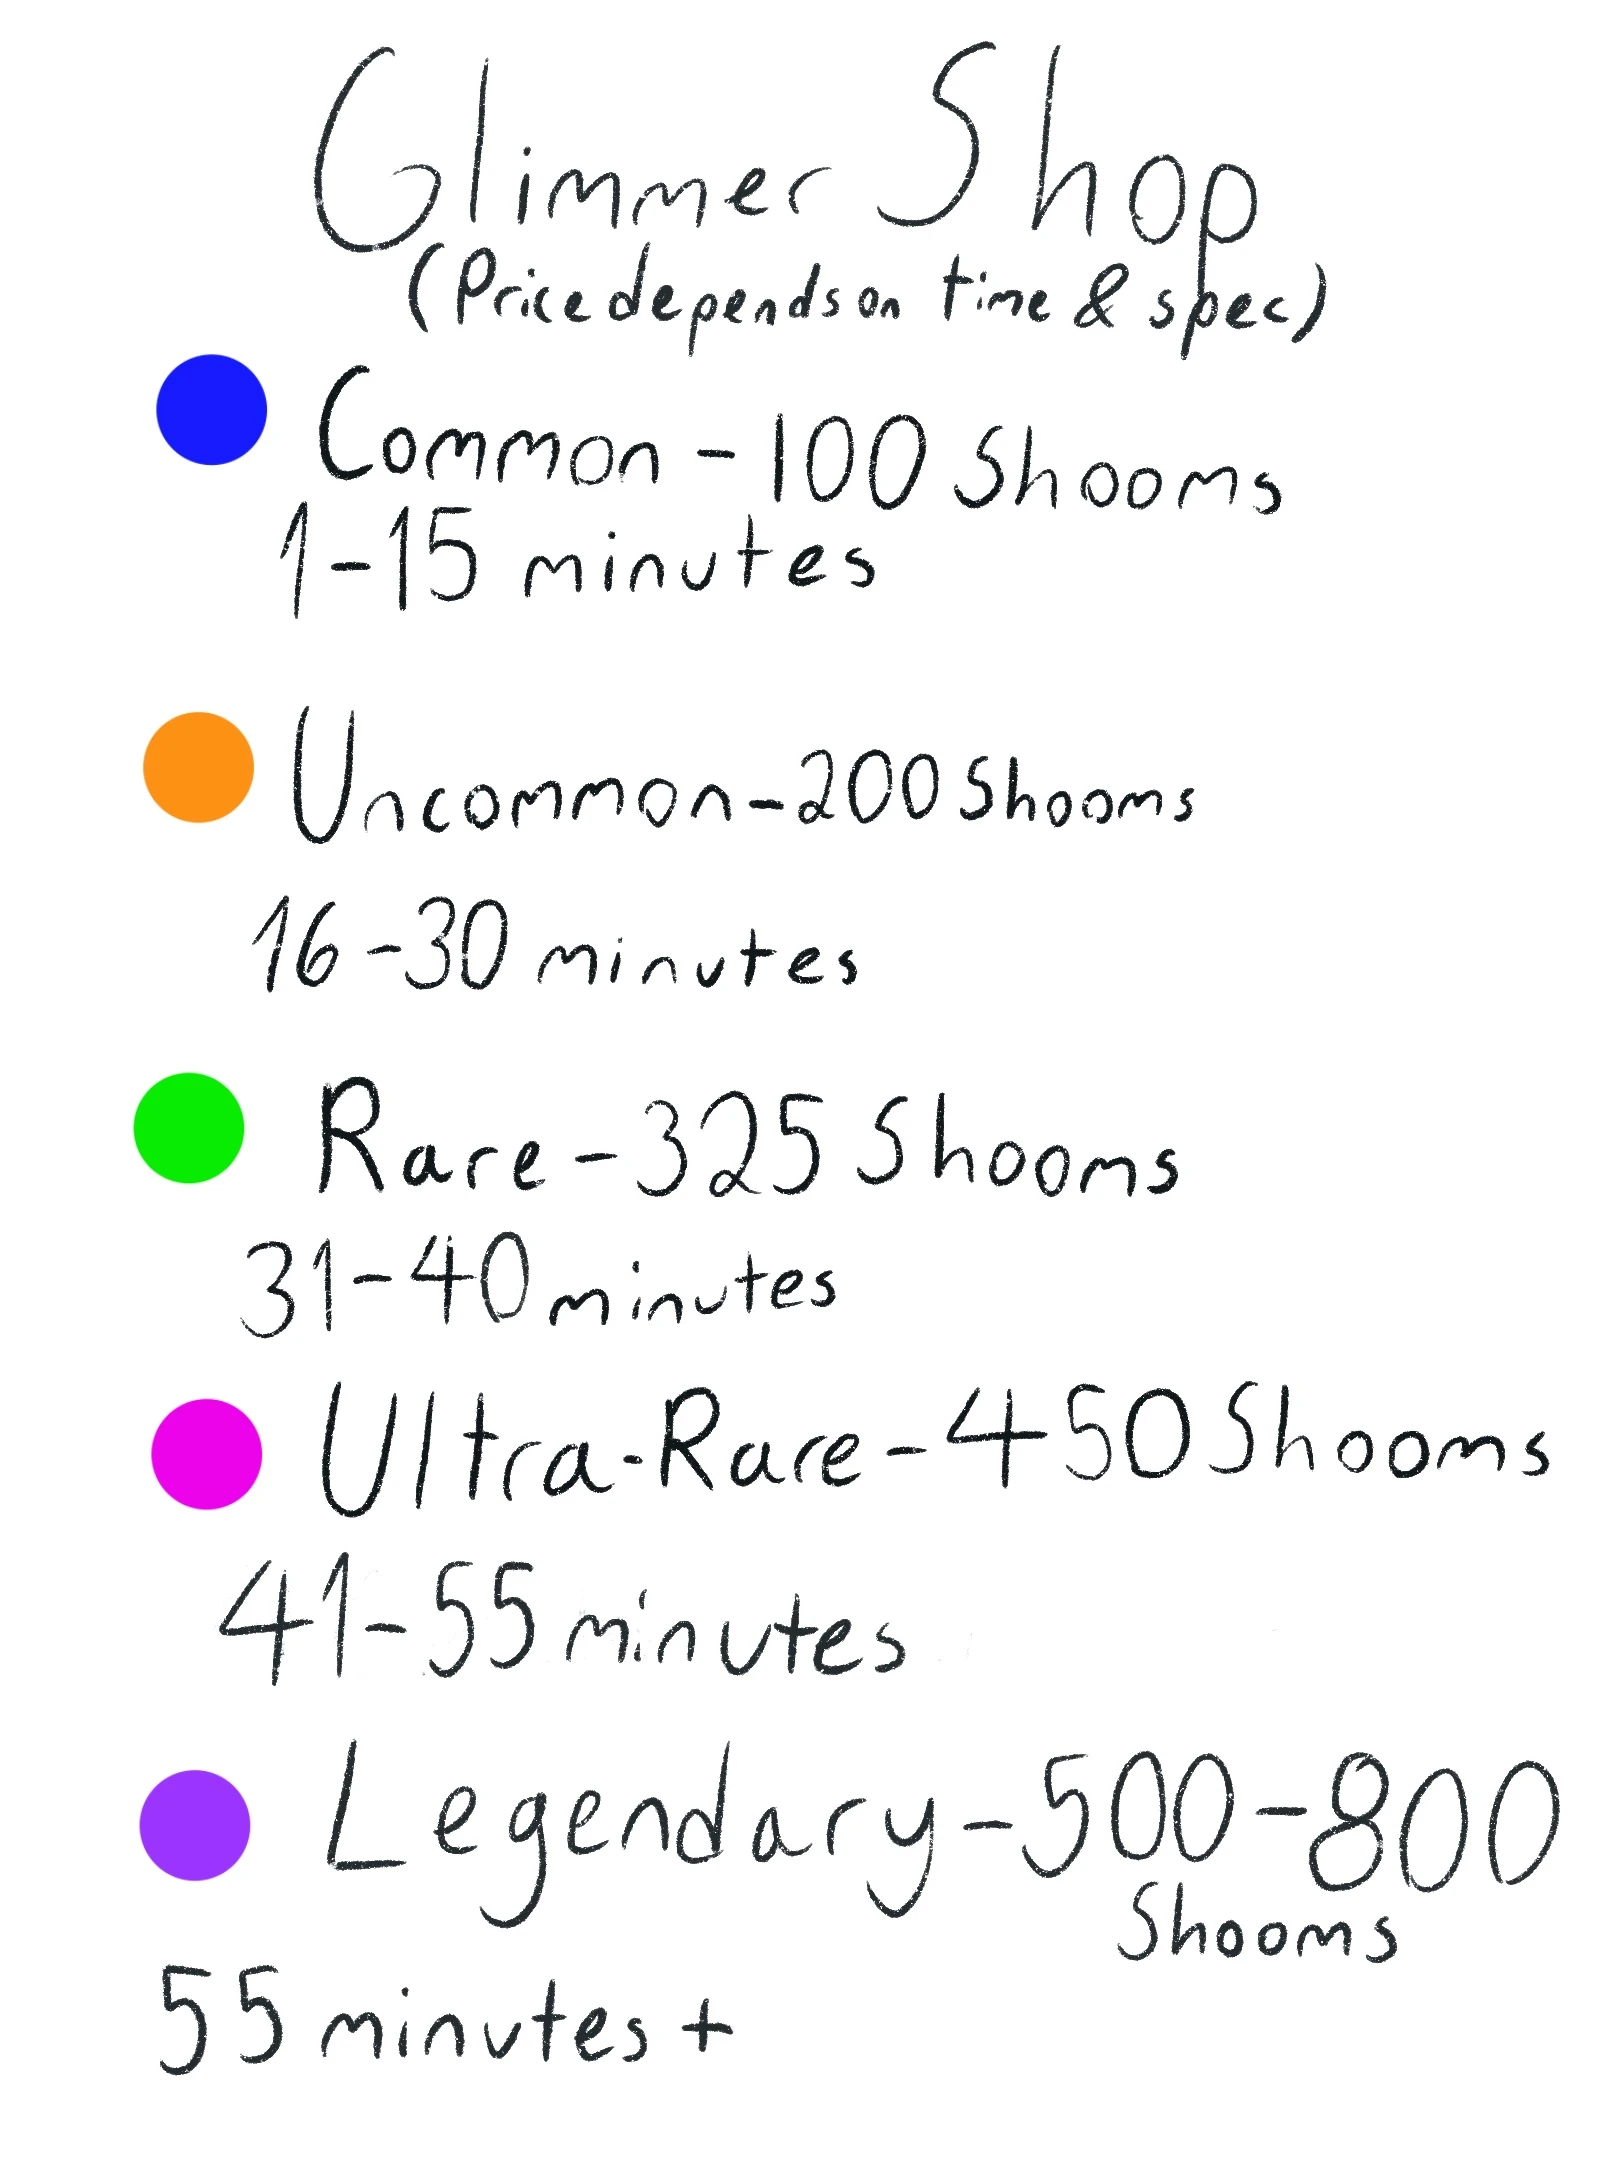 Glimmer Shop
(Price depends on time & spec)
Common - 100 Shooms
1-15 minutes
Uncommon - 200 Shooms
16-30 minutes
Rare - 325 Shooms
31-40 minutes
Ultra-Rare - 450 Shooms
41-55 minutes
Legendary - 500-800
Shooms
55 minutes +